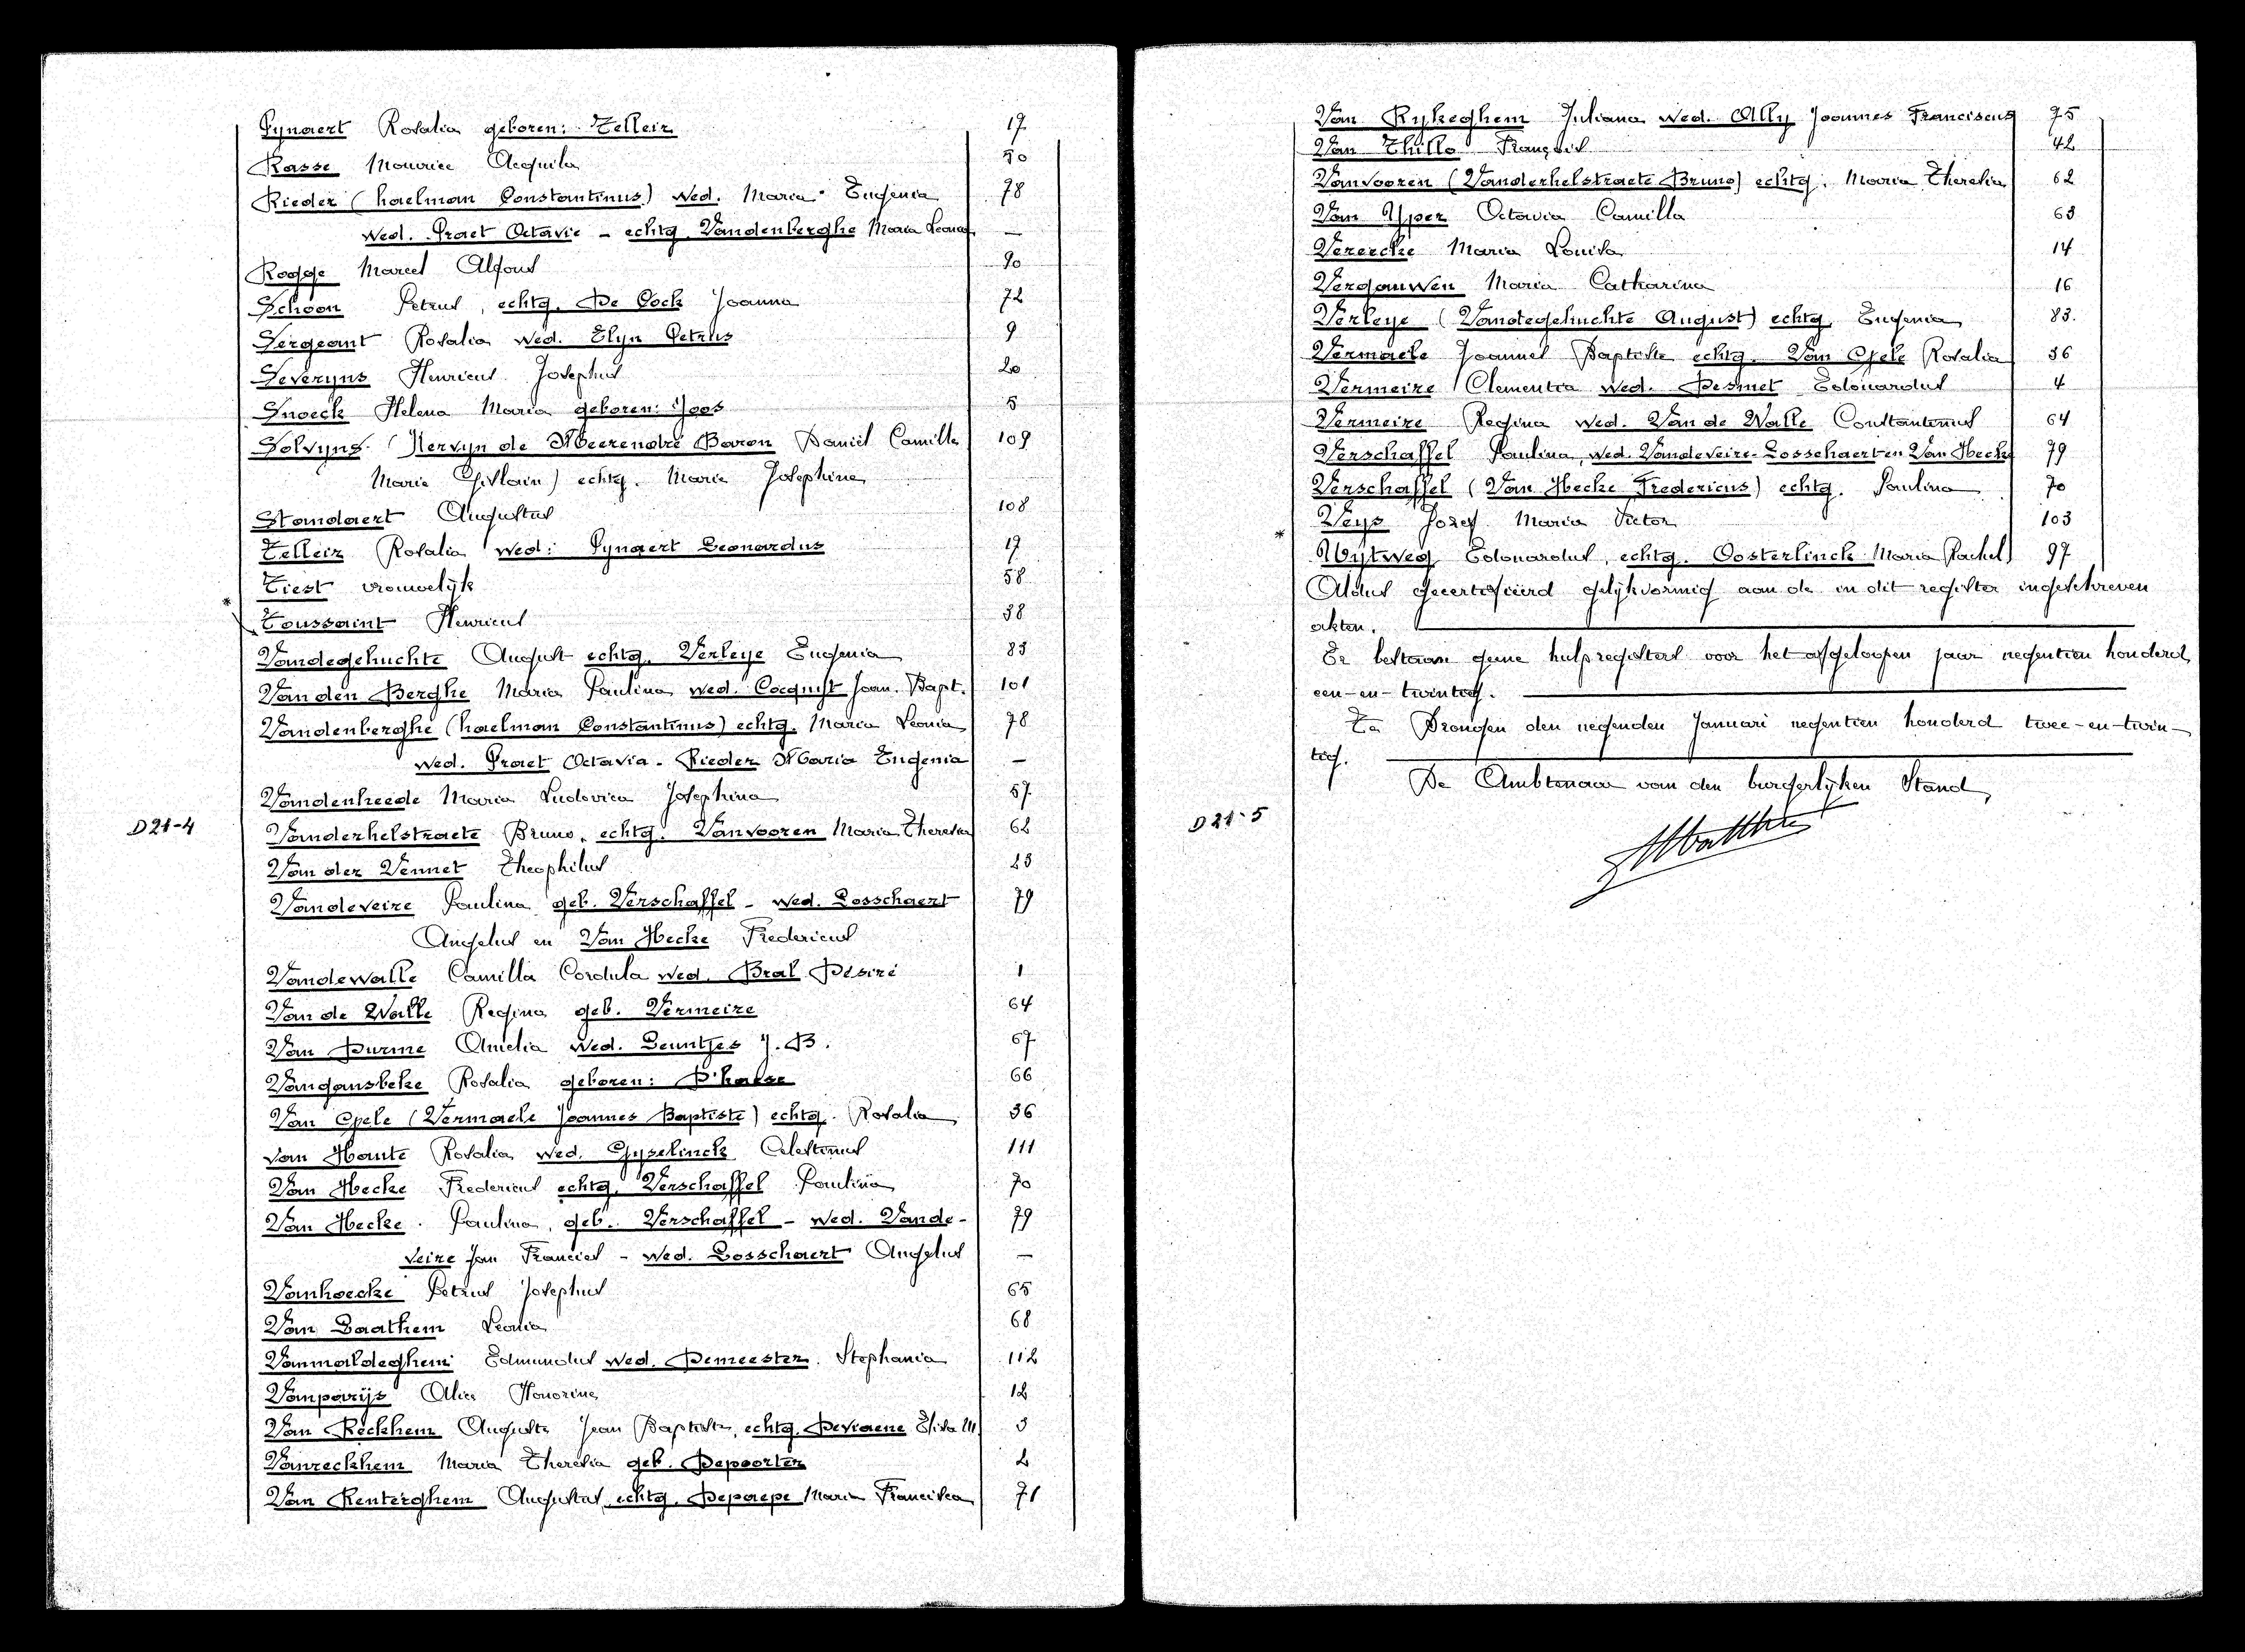 Pynaert Rosalia geboren: Telleir 17
Rasse Maurice Acquila 50
Rieder (haelman Constantinus) wed. Maria Eugenia 78
wed. Praet Octavie - echtg. Vandenberghe Maria Leonia —
Rogge Marcel Alfons 90
Schoon Petrus, echtg. De Cock Joanna 72
Sergeant Rosalia wed. Elyn Petrus 9
Severyns Henricus Josephus 20
Snoeck Helena Maria geboren: Joos 5
Solvyns (Kervyn de Meerendré Baron Daniël Camille 109
Marie Ghislain) echtg. Marie Josephine
Standaert Augustus 108
Telleir Rosalia wed: Pynaert Leonardus 17
Tiest vrouwelijk 58
* Toussaint Henricus 38
Vandegehuchte August echtg. Verleye Eugenia 83
Van den Berghe Maria Paulina wed. Cocquyt Joan. Bapt. 101
Vandenberghe (haelman Constantinus) echtg. Maria Leonia 78
wed. Praet Octavia - Rieder Maria Eugenia —
Vandenheede Maria Ludovica Josephina 57
D21-4
Vanderhelstraete Bruno, echtg. Vanvooren Maria Theresia 62
Van der Vennet Theophilus 23
Vandeveire Paulina geb. Verschaffel - wed. Losschaert 79
Angelus en Van Hecke Fredericus
Vandewalle Camilla Cordula wed. Bral Désiré 1
Van de Walle Regina geb. Vermeire 64
Van Durme Amelia wed. Leuntjes J. B. 67
Vangansbeke Rosalia geboren: D'halse 66
Van Gele (Vermaele Joannes Baptiste) echtg. Rosalia 36
van Haute Rosalia wed. Gyselinck Celestinus 111
Van Hecke Fredericus echtg. Verschaffel Paulina 70
Van Hecke Paulina, geb. Verschaffel - wed. Vande- 79
veire Jan Francies - wed. Losschaert Angelus —
Vanhoecke Petrus Josephus 65
Van Laathem Leonia 68
Vanmaldeghem Edmundus wed. Demeester Stephania 112
Vanparijs Alice Honorina 12
Van Reckhem Auguste Jean Baptiste, echtg. Deviaene Elisa M. 3
Vanreckhem Maria Theresia geb. Depoorter 2
Van Renterghem Augustus echtg. Depaepe Maria Francisca 71
Van Rykeghem Juliana wed. Ally Joannes Franciscus 75
Van Thillo François 42
Vanvooren (Vanderhelstraete Bruno) echtg. Maria Theresia 62
Van Yper Octavia Camilla 63
Verercke Maria Louisa 14
Vergauwen Maria Catharina 16
Verleye (Vandegehuchte August) echtg. Eugenia 83.
Vermaele Joannes Baptiste echtg. Van Gele Rosalia 36
Vermeire Clementia wed. Desmet Edouardus 4
Vermeire Regina wed. Van de Walle Constantinus 64
Verschaffel Paulina, wed. Vandeveire-Losschaert en Van Hecke 79
Verschaffel (Van Hecke Fredericus) echtg. Paulina 70
Veys Jozef Maria Victor 103
* Uijtweg Edouardus, echtg. Oosterlinck Maria Rachel 97
Aldus gecertifieerd gelijkvormig aan de in dit register ingeschreven
akten.
Er bestaan geene hulpregisters voor het afgeloopen jaar negentien honderd
een-en-twintig.
Te Drongen den negenden Januari negentien honderd twee-en-twin-
tig.
De Ambtenaar van den burgerlijken Stand,
D21-5